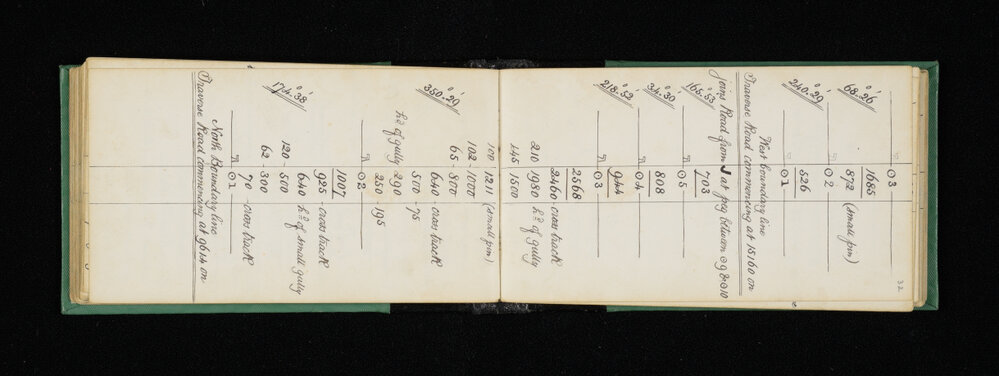 32
⊙3
1685
68°.26'
872 (small pin)
⊙2
240°.29' 526
⊙1
West boundary line
Traverse Road commencing at 15160 on
joins Road from J at peg between ⊙9 & ⊙10
165°.53' 703
⊙5
34°.30' 808
⊙4
218°.52' 944
⊙3
2568
2460 - cross track
210 1980 hd of gully
145 1500
100 1211 (small pin)
102 - 1000
65 - 800
350°.29' 640 - cross track
500 - 75
hd of gully 290
250 - 195
⊙2
1007
925 - cross track
174°.38' 640 hd of small gully
120 - 500
62 - 300
70 - cross track
⊙1
North Boundary line
Traverse Road commencing at 9614 on